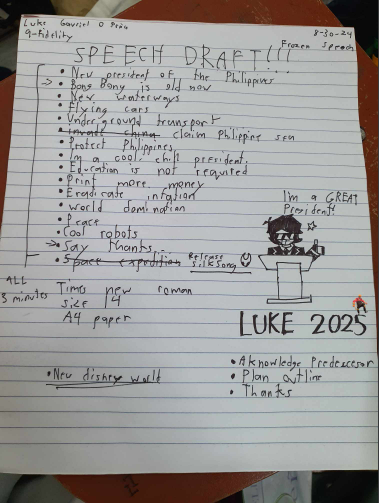 Luke Gavriel O
9-Fidelity
8-30-24
Frozen Speech
SPEECH DRAFT!!!
• New president of the Philippines
→ • Bong Bong is old now
• New waterways
• Flying cars
• Underground transport
• Invade china claim Philippine sea
• Protect Philippines
• I'm a cool, chill president.
• Education is not required
• Print more money
• Eradicate inflation
• World domination
• Peace
• Cool robots
→ Say thanks...
• Space expedition Release silksong
I'm a GREAT
President!
ALL
3 minutes
Times new roman
size 14
A4 paper
LUKE 2025
• New disney world
• Aknowledge Predecessor
• Plan outline
• Thanks